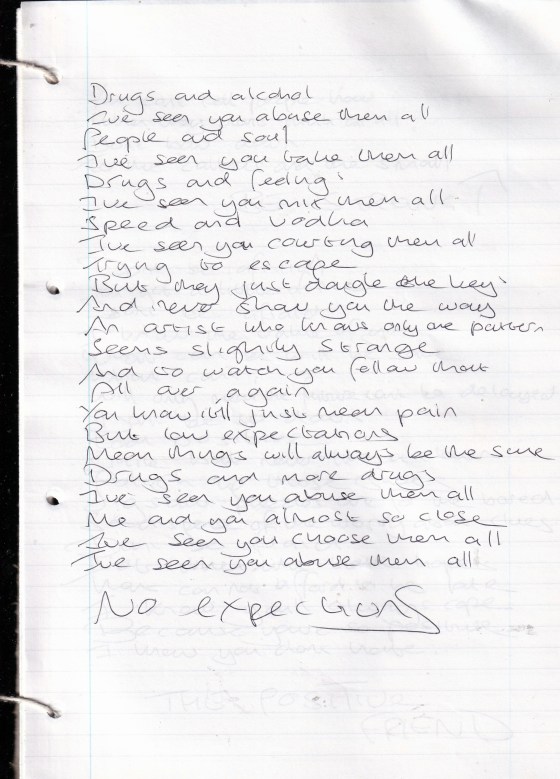 Drugs and alcohol
I've seen you abuse them all
People and soul
I've seen you take them all
Drugs and feeling's
I've seen you mix them all
Speed and vodka
I've seen you courting them all
Trying to escape
But they just dangle the key's
And never show you the way
An artist who knows only one pattern
Seems slightly strange
And to watch you follow that
All over again
You know it'll just mean pain
But low expectations
Mean things will always be the same
Drugs and more drugs
I've seen you abuse them all
Me and you almost so close
I've seen you choose them all
I've seen you abuse them all
No expections